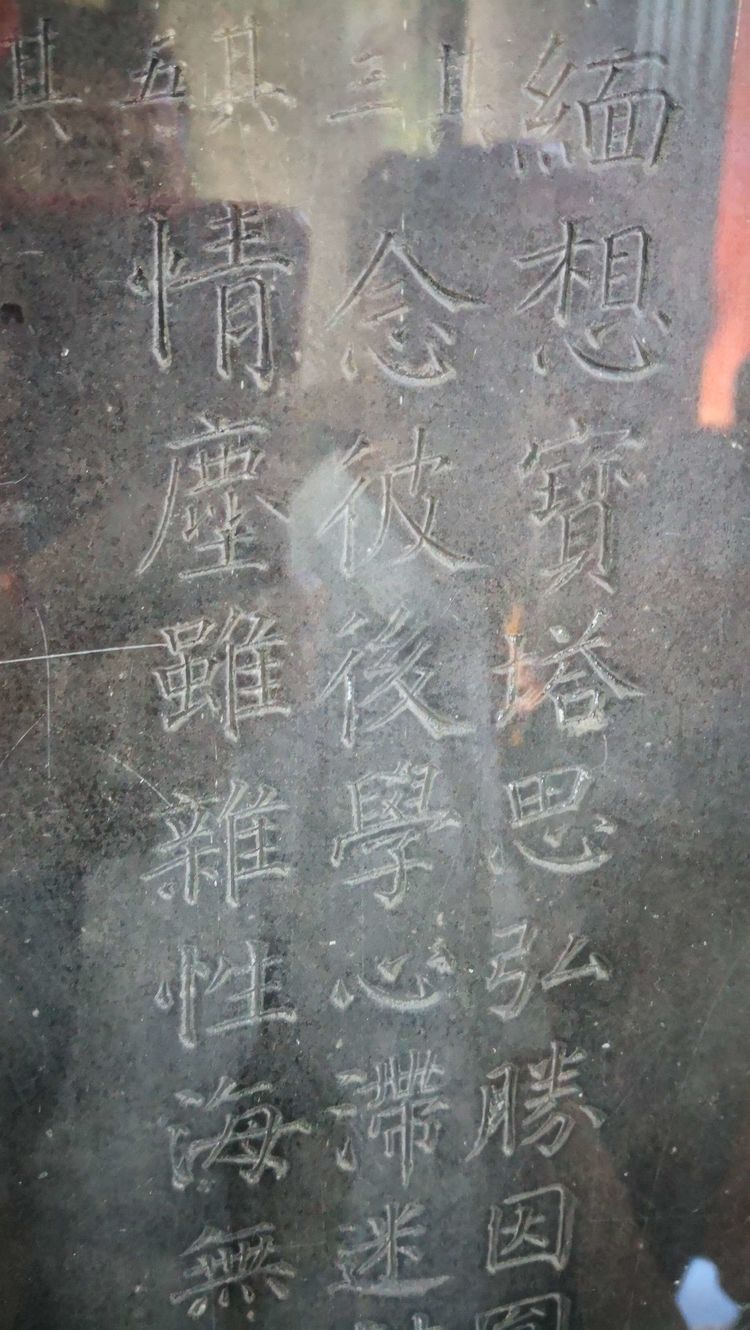 緬想寶塔思弘勝因圓
其三
念彼後學心滯迷
其五
情塵雖雜性海無
其